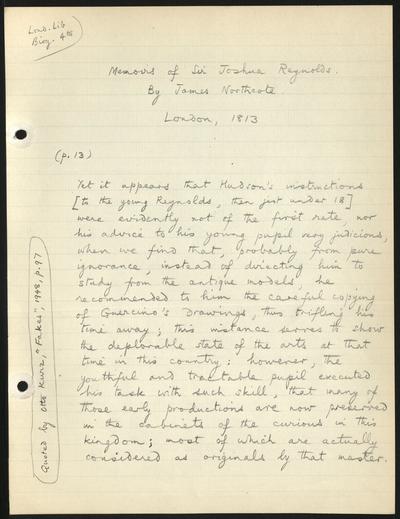 Lond. Lib
Biog. 4to
Memoirs of Sir Joshua Reynolds.
By James Northcote.
London, 1813
(p. 13)
Yet it appears that Hudson's instructions
[to the young Reynolds, then just under 18]
were evidently not of the first rate, nor
his advice to his young pupil very judicious,
when we find that, probably from pure
ignorance, instead of directing him to
study from the antique models, he
recommended to him the careful copying
of Guercino's Drawings, thus trifling his
time away; this instance serves to show
the deplorable state of the arts at that
time in this country: however, the
youthful and tractable pupil executed
his task with such skill, that many of
those early productions are now preserved
in the cabinets of the curious in this
kingdom; most of which are actually
considered as originals by that master.
Quoted by Otto Kurz, "Fakes", 1948, p.97